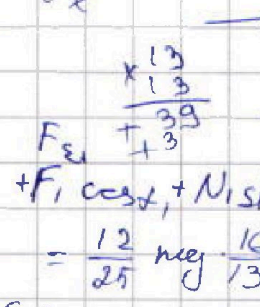 × 13
13
+ 39
+ 3
+F₁ cosα₁ + N₁ s
= 12/25 mg · 16/13